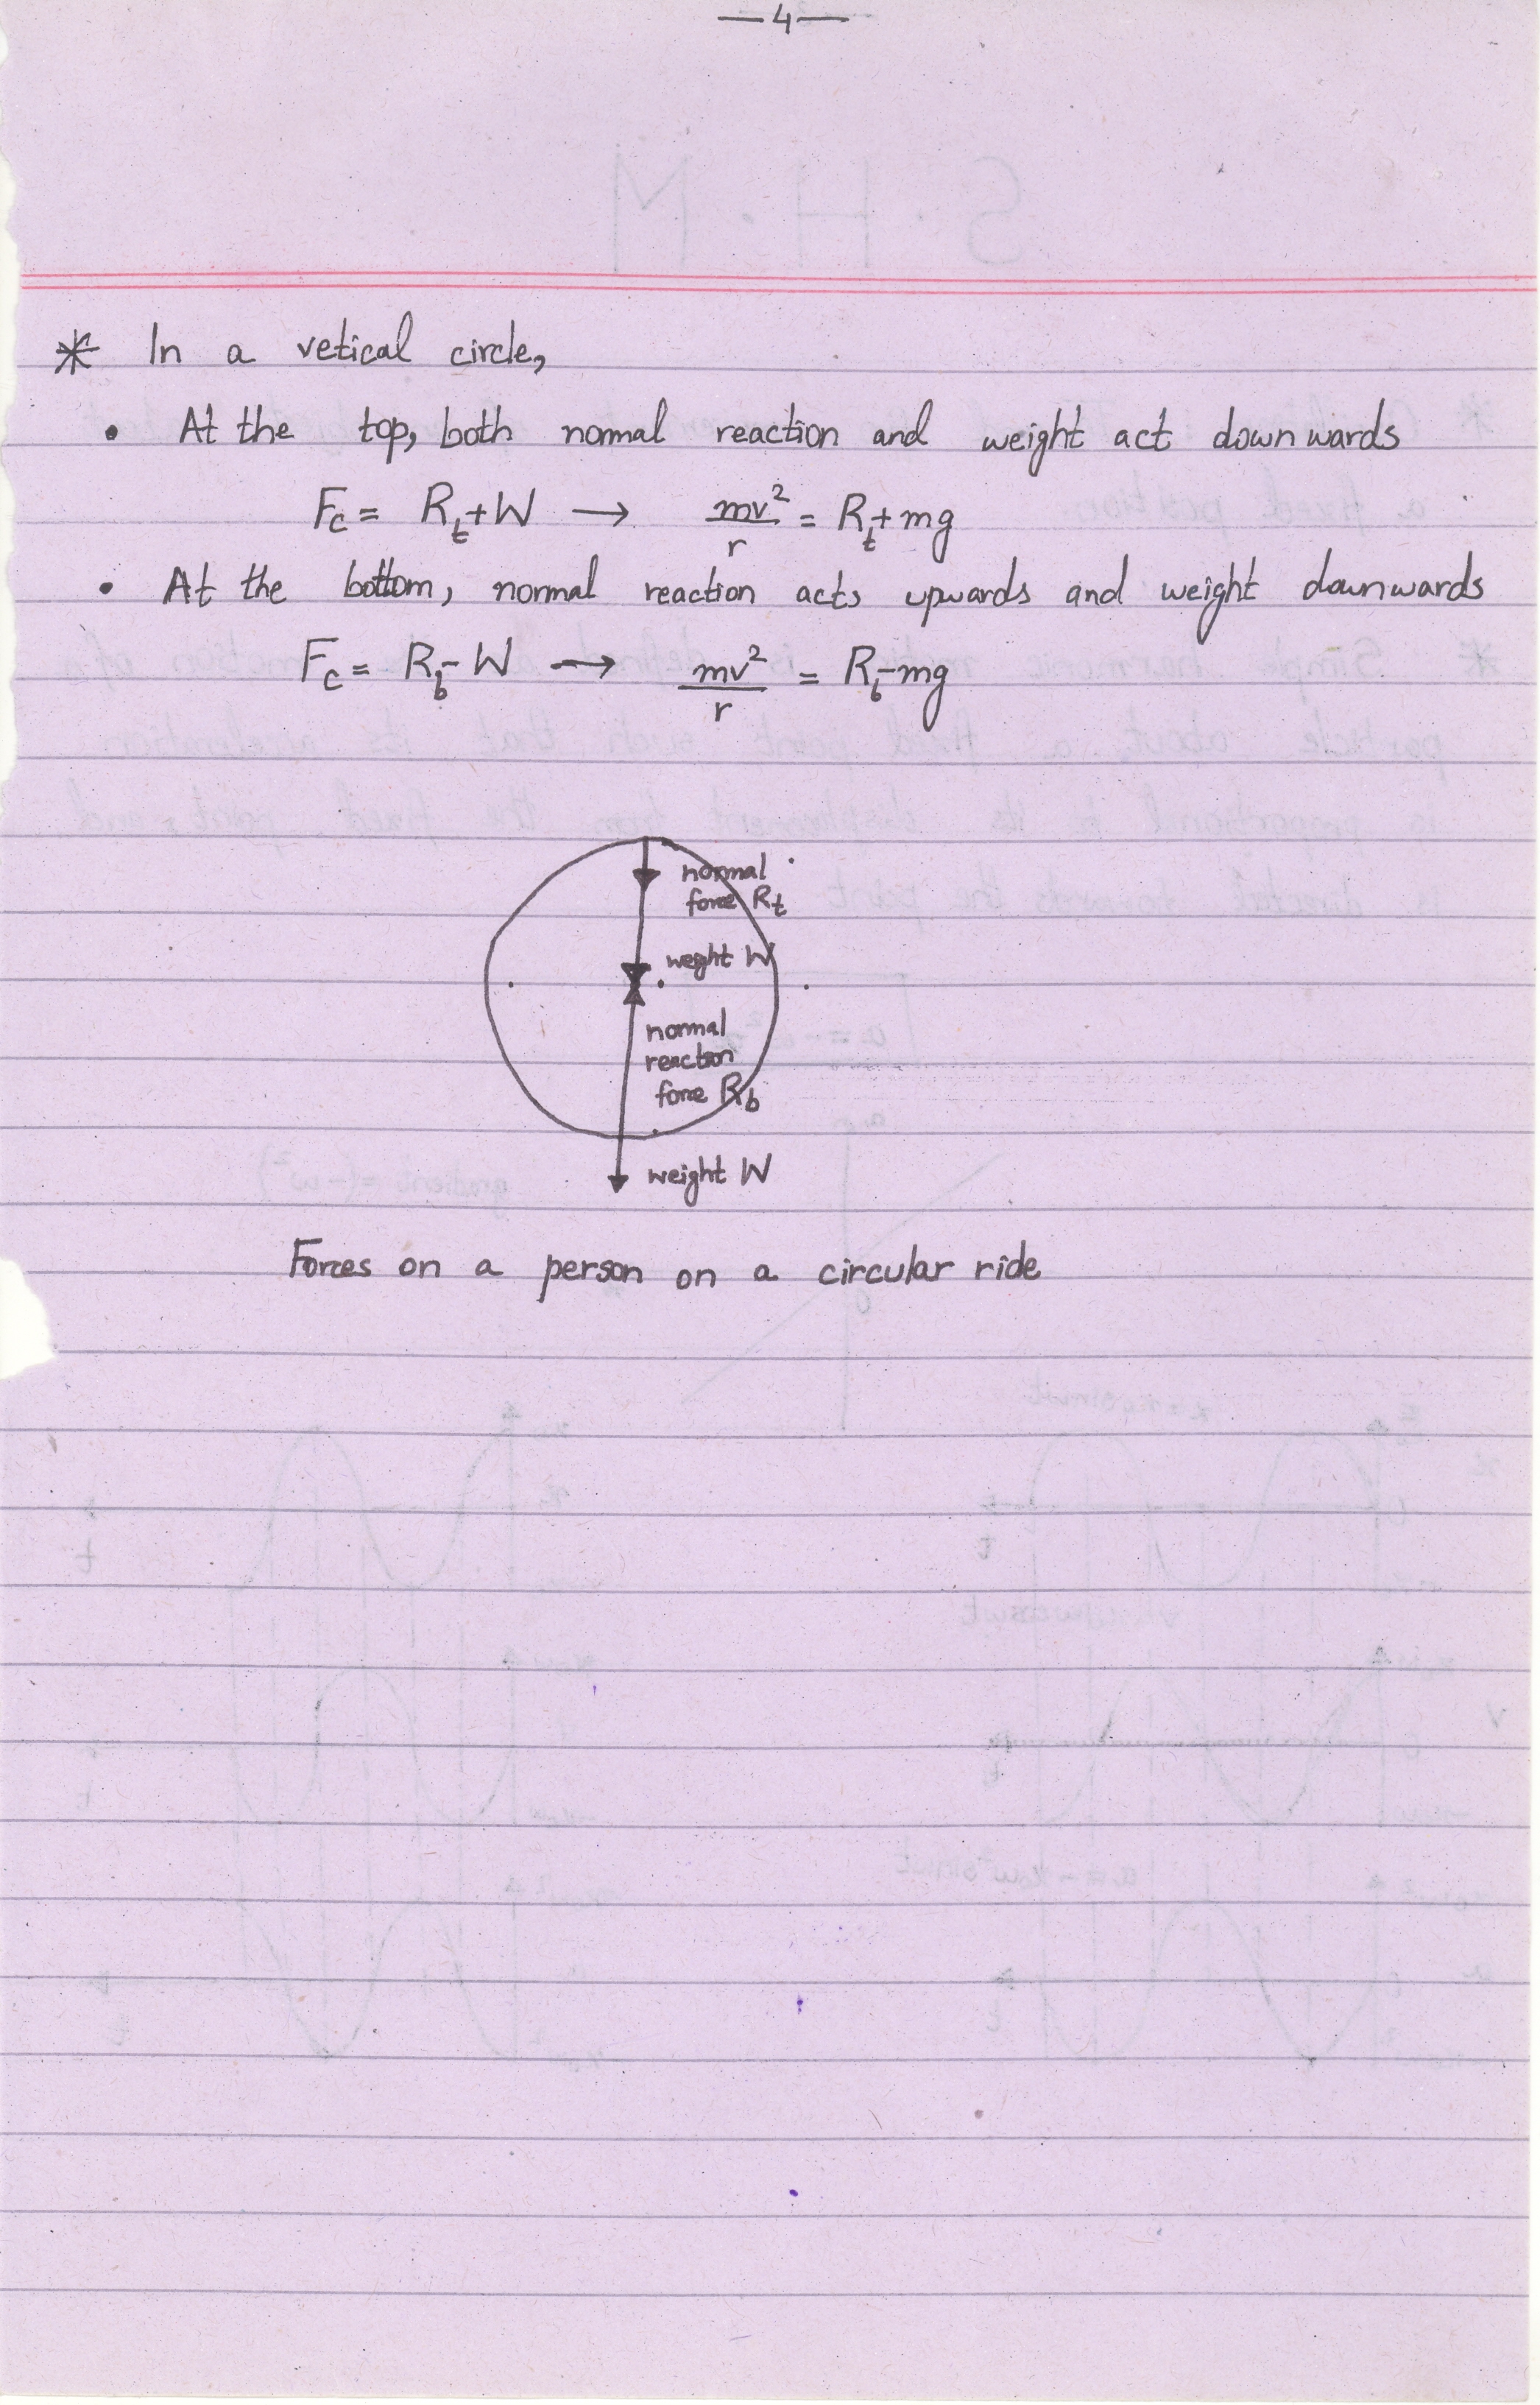 —4—
* In a vetical circle,
• At the top, both normal reaction and weight act downwards
Fc = Rt+W → mv²/r = Rt+mg
• At the bottom, normal reaction acts upwards and weight downwards
Fc = Rb-W → mv²/r = Rb-mg
normal
force Rt
weght W
normal
reaction
force Rb
weight W
Forces on a person on a circular ride